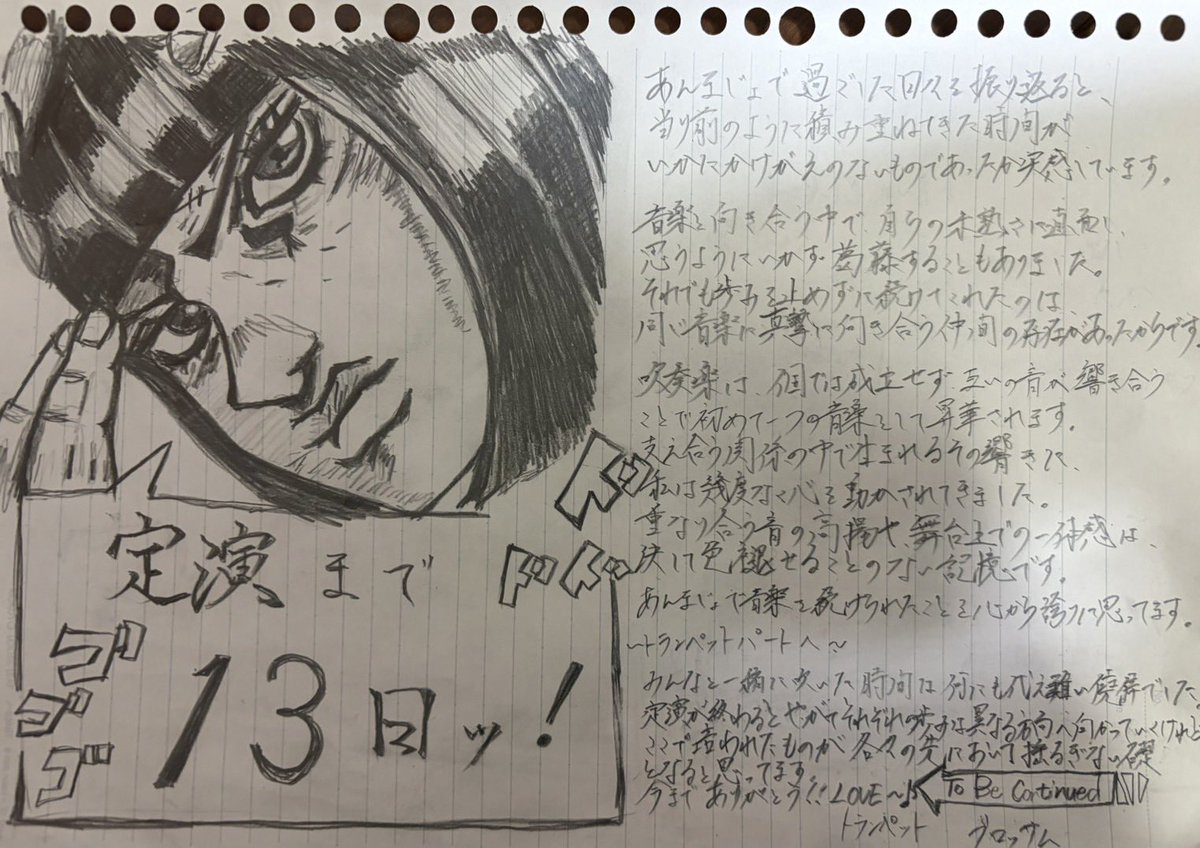 定演まで
13日ッ!
ゴゴゴ
ドドド
あんまじょで過ごした日々を振り返ると、
当り前のように積み重ねてきた時間が
いかにかけがえのないものであったか実感しています。
音楽と向き合う中で、自らの未熟さに直面し、
思うようにいかず葛藤することもありました。
それでも歩みを止めずに続けてこれたのは、
同じ音楽に真摯に向き合う仲間の存在があったからです。
吹奏楽は、個では成立せず互いの音が響き合う
ことで初めて一つの音楽として昇華されます。
支え合う関係の中で生まれるその響きに、
私は幾度なく心を動かされてきました。
重なり合う音の高揚や舞台上での一体感は、
決して色褪せることのない記憶です。
あんまじょで音楽を続けられたことを心から誇りに思ってます。
~トランペットパートへ~
みんなと一緒に吹いた時間は何にも代え難い優勝でした
定演が終わるとやがてそれぞれの歩みは異なる方向へ向かっていくけれど
ここで培われたものが各々の先において揺るぎない礎
となると思ってます。
今までありがとう!! LOVE~♪
To Be Continued
トランペット ブロッサム